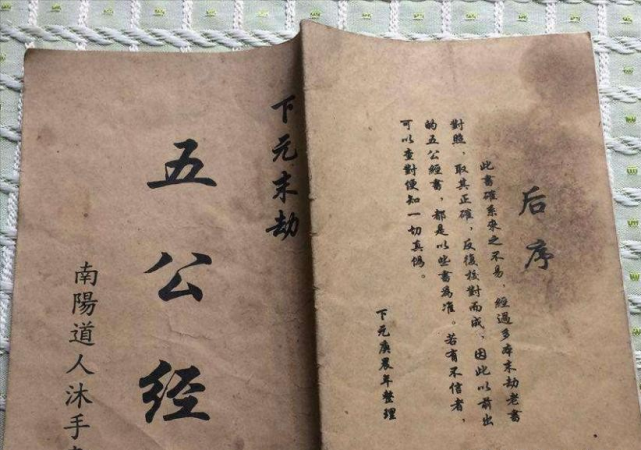 下元末劫
五公经
南陽道人沐手
后序
此書確系來之不易，經過多本末劫老書
對照，取其正確，反復核對而成，因此以前出
的五公經書，都是以些書為准。若有不信者，
可以查對便知一切真僞。
下元庚辰年整理